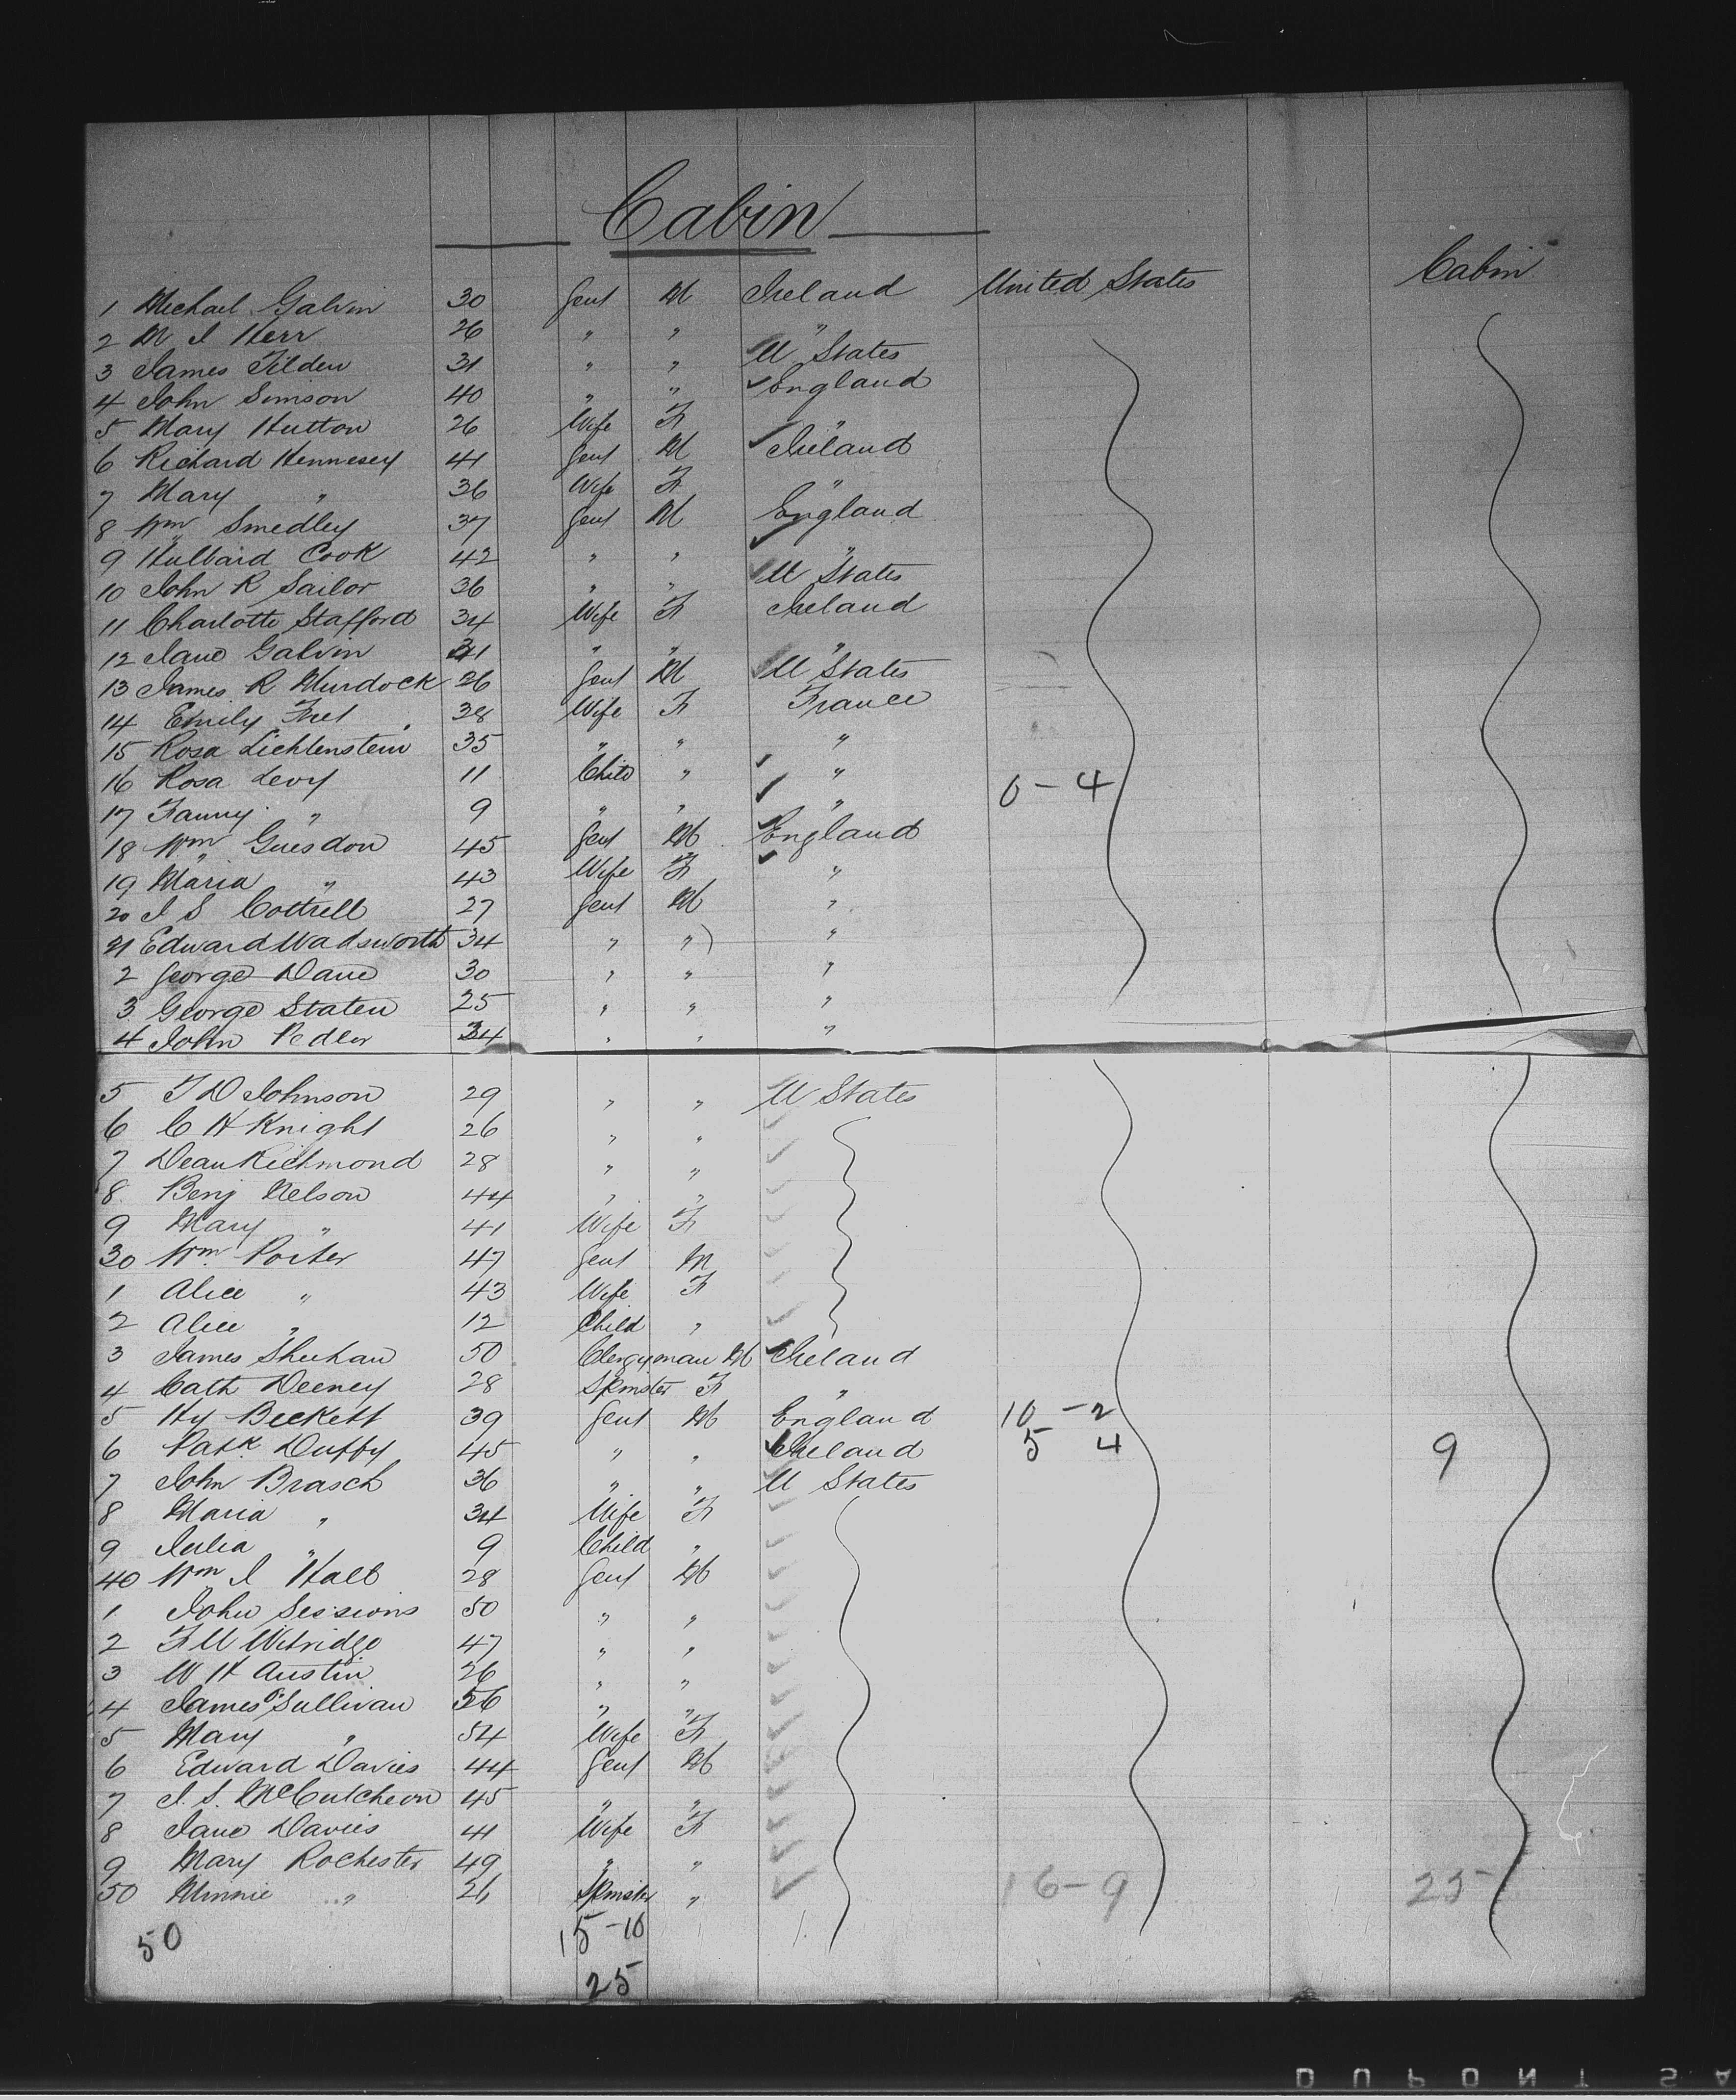 Cabin
1 Michael Galvin 30 Gent M Ireland United States Cabin
2 M J Kerr 26 " " "
3 James Tilden 31 " " U States
4 John Simson 40 " " England
5 Mary Hutton 26 Wife F "
6 Richard Hennesey 41 Gent M Ireland
7 Mary " 36 Wife F "
8 Wm Smedley 37 Gent M England
9 Hulbard Cook 42 " " "
10 John R Sailor 36 " " U States
11 Charlotte Stafford 34 Wife F Ireland
12 Jane Galvin 31 " " "
13 James R Murdock 26 Gent M U States
14 Emily 38 Wife F France
15 Rosa Lichtenstein 35 " " "
16 Rosa Levy 11 Child " " 0 - 4
17 Fanny " 9 " " "
18 Wm Guesdon 45 Gent M England
19 Maria " 43 Wife F "
20 J S Cottrell 27 Gent M "
21 Edward Wadsworth 34 " " "
2 George Dane 30 " " "
3 George Staten 25 " " "
4 John Pedler 34 " " "
5 T D Johnson 29 " " U States
6 C H Knight 26 " "
7 Dean Richmond 28 " "
8 Benj Nelson 44 " "
9 Mary " 41 Wife F
30 Wm Porter 47 Gent M
1 Alice " 43 Wife F
2 Alice " 12 Child "
3 James Sheehan 50 Clergyman M Ireland
4 Cath Deeney 28 Spinster F "
5 Hy Beckett 39 Gent M England 10 - 2
6 Patk Duffy 45 " " Ireland 5 4 9
7 John Brasch 36 " " U States
8 Maria " 34 Wife F
9 Julia " 9 Child "
40 Wm J Hall 28 Gent M
1 John Sessions 50 " "
2 F W Witridge 47 " "
3 W H Austin 26 " "
4 James O'Sullivan 56 " "
5 Mary " 54 Wife F
6 Edward Davies 44 Gent M
7 J. S. McCutcheon 45 " "
8 Jane Davies 41 Wife F
9 Mary Rochester 49 " "
50 Minnie " 21 Spinster " 16 - 9 25
50 15 - 10
25
DUPONT SA